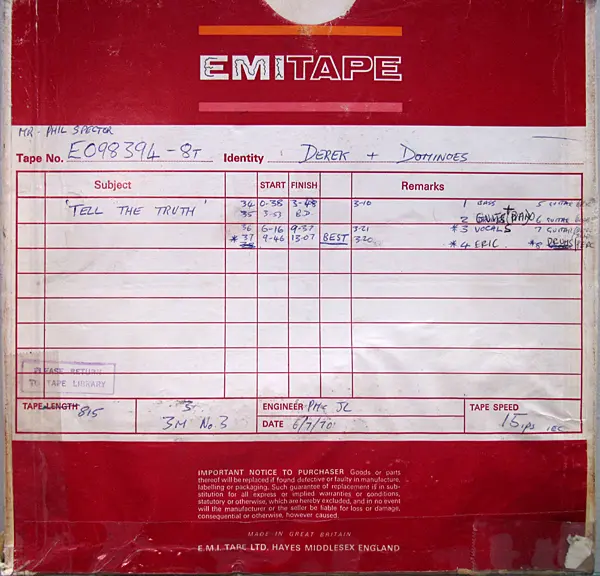 EMITAPE
MR. PHIL SPECTOR
Tape No. E098394 -8T Identity DEREK + DOMINOES
Subject START FINISH Remarks
'TELL THE TRUTH' 34 0-38 3-48 3-10 1 BASS 5 GUITAR
35 3-53 B.D 2 PIANO 6 GUITAR
36 6-16 9-37 3-21 * 3 VOCALS 7 GUITAR
* 37 9-46 13-07 BEST 3-20 * 4 ERIC. * 8 DRUMS/PERC
PLEASE RETURN
TO TAPE LIBRARY
TAPE LENGTH 815 3M No 3 ENGINEER JL TAPE SPEED 15 ips IEC
DATE 6/7/70
IMPORTANT NOTICE TO PURCHASER Goods or parts
thereof will be replaced if found defective or faulty in manufacture,
labelling or packaging. Such guarantee of replacement is in sub-
stitution for all express or implied warranties or conditions,
statutory or otherwise, which are hereby excluded, and in no event
will the manufacturer or the seller be liable for loss or damage,
consequential or otherwise, however caused.
MADE IN GREAT BRITAIN
E.M.I. TAPE LTD, HAYES MIDDLESEX ENGLAND